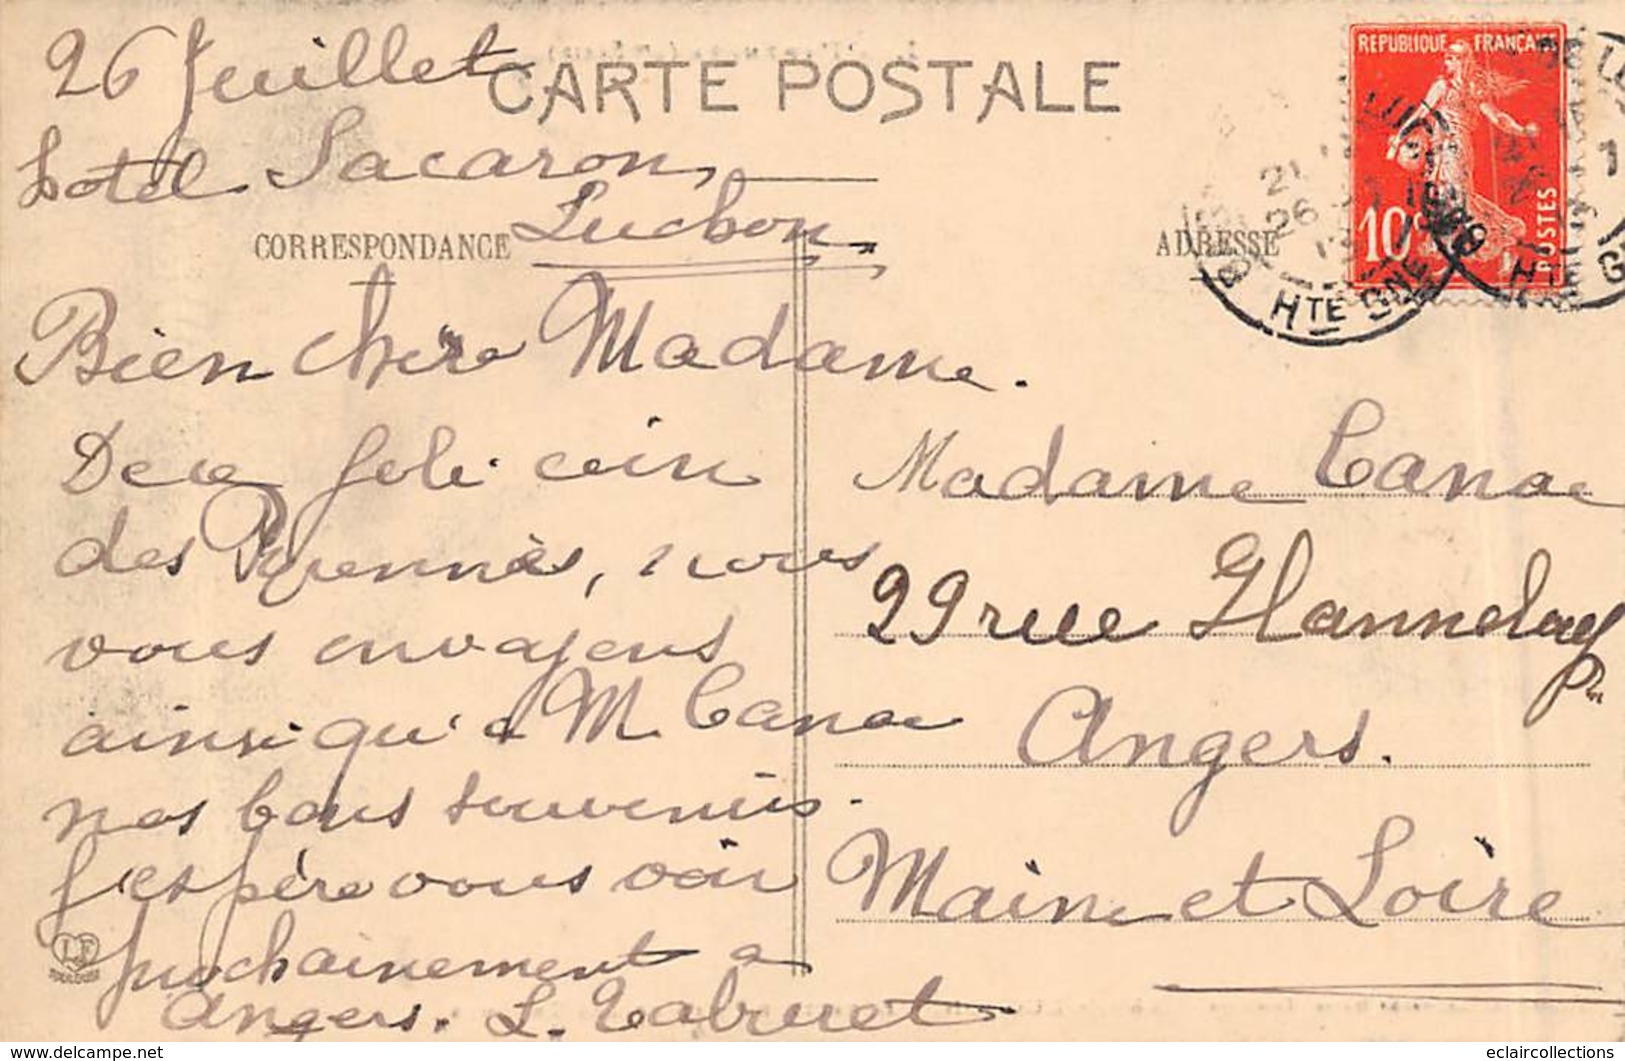 26 Juillet
CARTE POSTALE
hotel Sacaron,
Luchon,
CORRESPONDANCE
ADRESSE
REPUBLIQUE FRANÇAISE
10c
POSTES
HTE GNE
Bien chère Madame.
De ce joli coin
des Pyrennès, nous
vous envoyons
ainsi qu'à M Canac
nos bons souvenirs.
J'espère vous voir
prochainement a
Angers. L. Tabruet
Madame Canac
29 rue Hanneloup
Angers.
Maine et Loire
eclaircollections